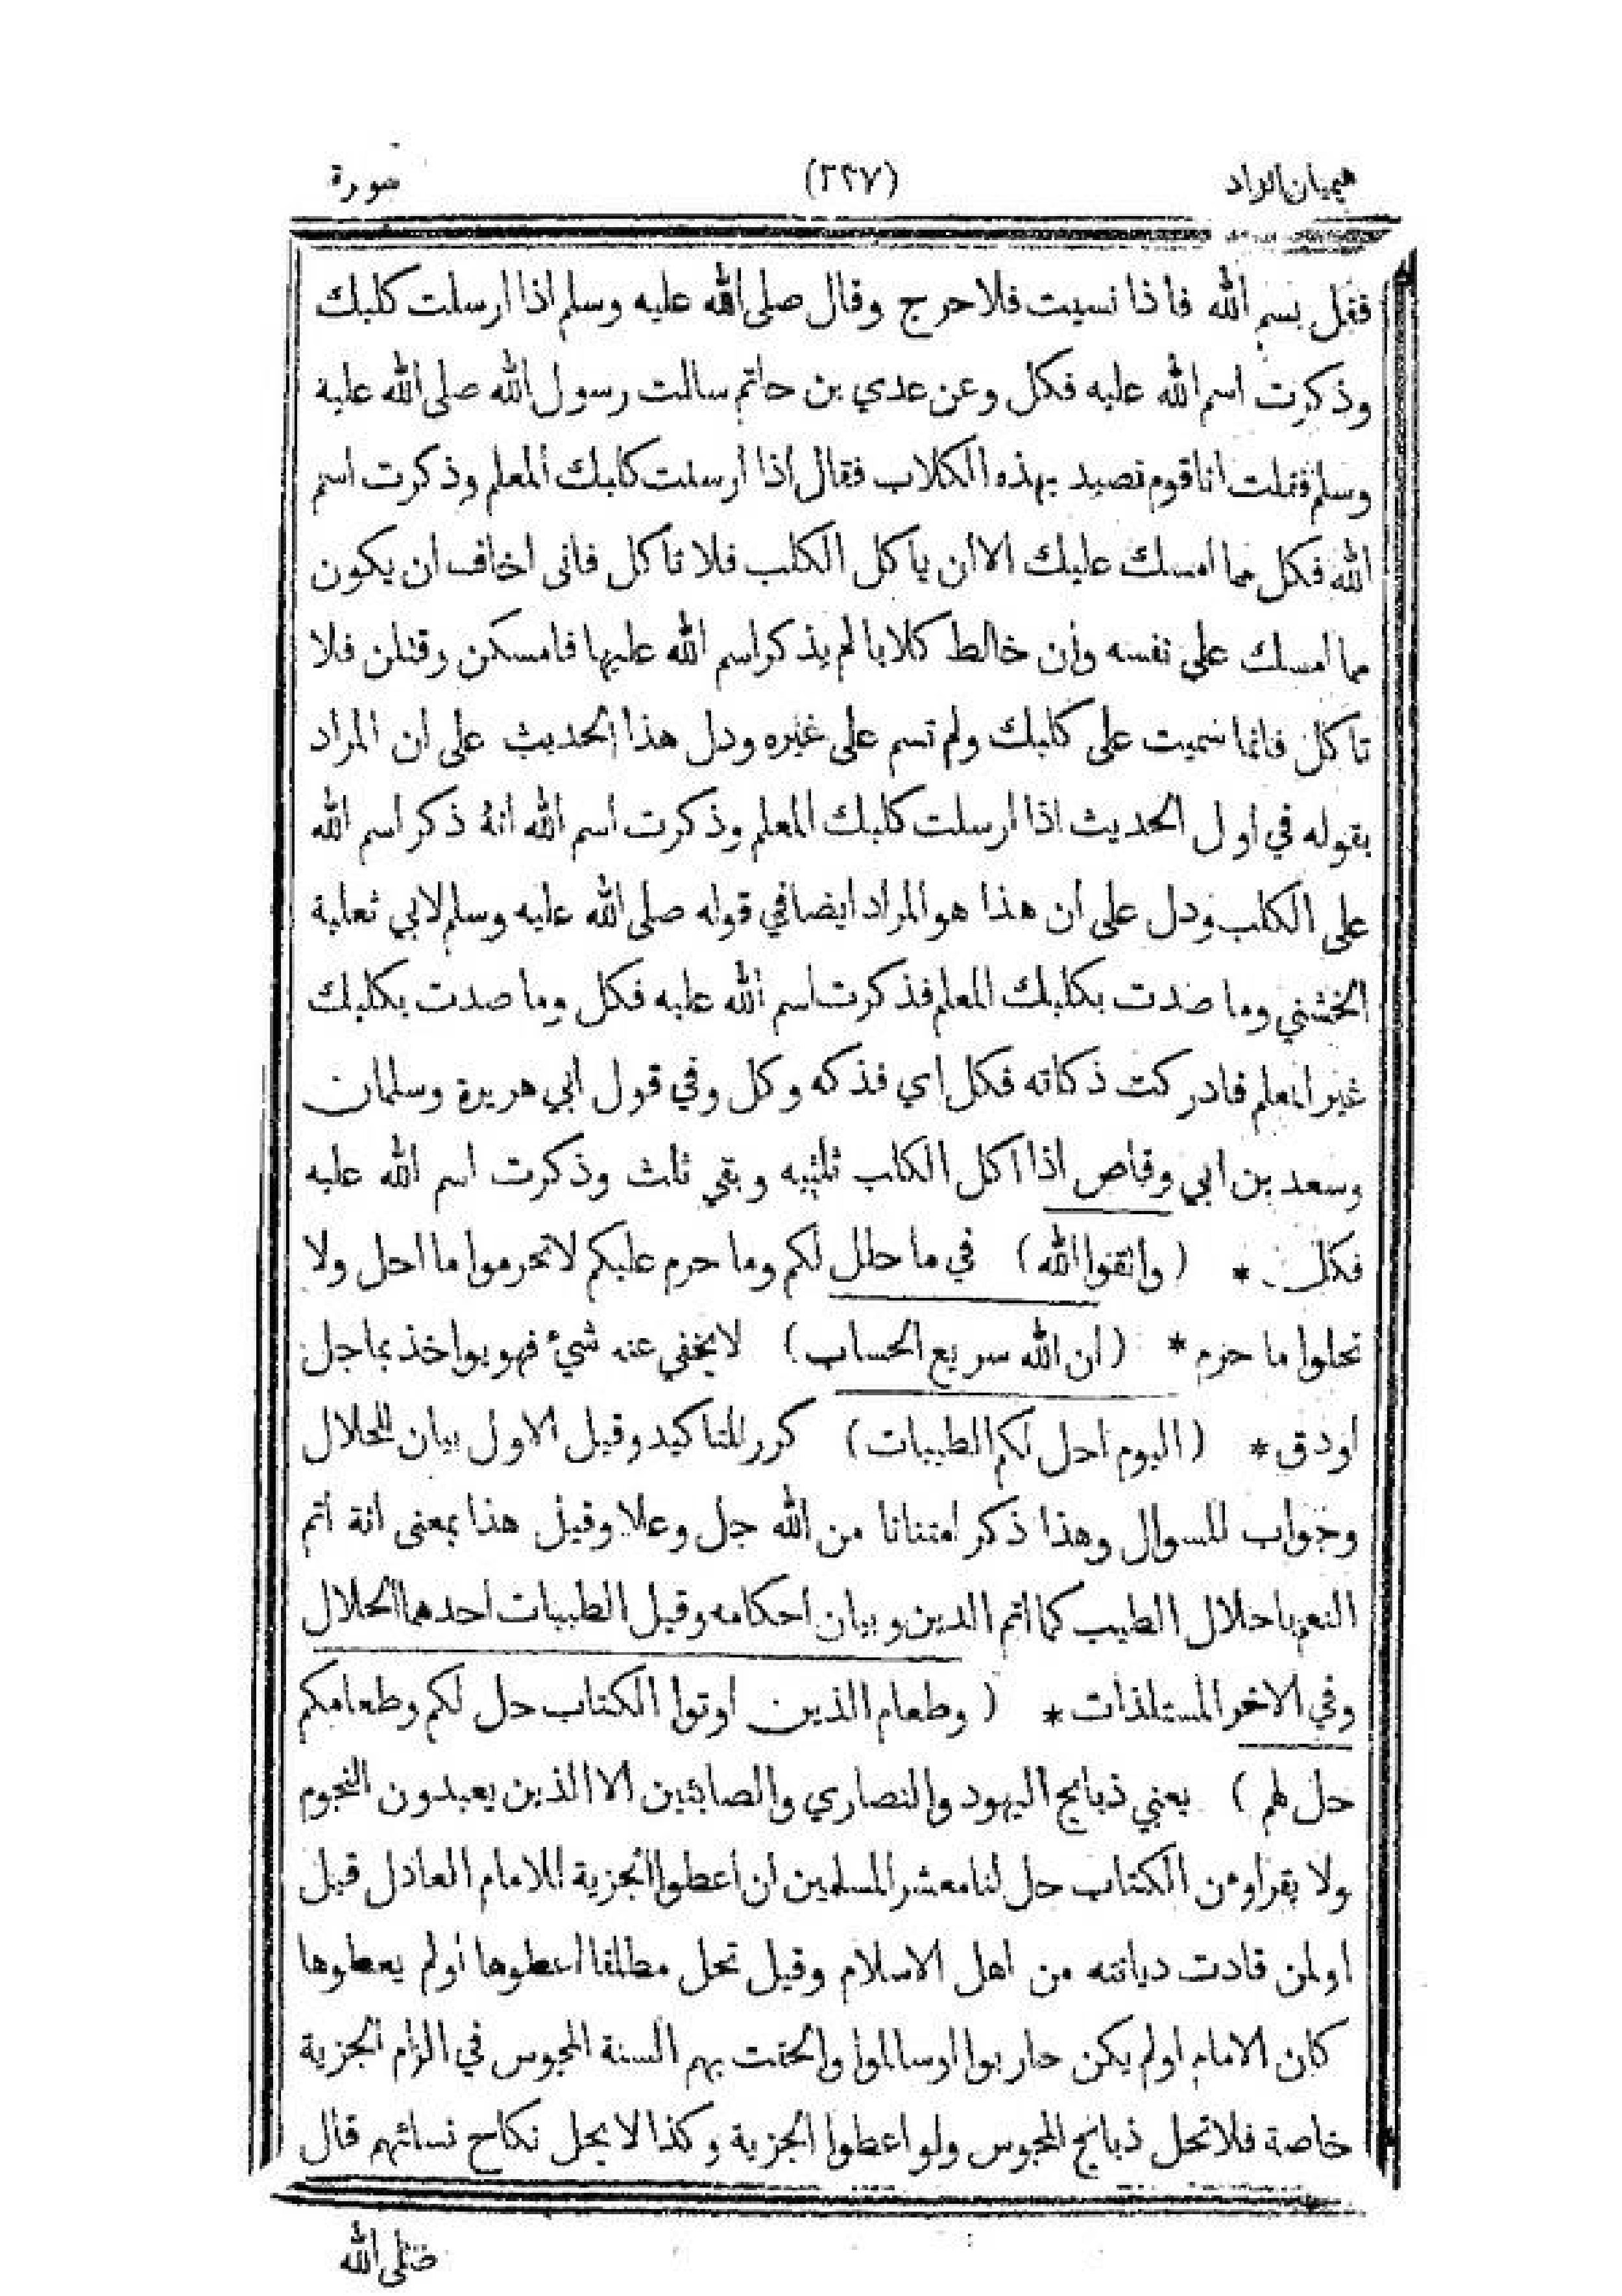 هيميان الزاد (٢٢٧) سورة
فقل بسم الله فاذا نسيت فلا حرج وقال صلى الله عليه وسلم اذا ارسلت كلبك
وذكرت اسم الله عليه فكل وعن عدي بن حاتم سالت رسول الله صلى الله عليه
وسلم فقلت انا قوم نصيد بهذه الكلاب فقال اذا ارسلت كلبك المعلم وذكرت اسم
الله فكل مما امسك عليك الا ان ياكل الكلب فلا تاكل فانى اخاف ان يكون
مما امسك على نفسه وان خالط كلابا لم يذكر اسم الله عليها فامسكن وقتلن فلا
تاكل فانما سميت على كلبك ولم تسم على غيره ودل هذا الحديث على ان المراد
بقوله في اول الحديث اذا ارسلت كلبك المعلم وذكرت اسم الله انه ذكر اسم الله
على الكلب ودل على ان هذا هو المراد ايضا في قوله صلى الله عليه وسلم لابي ثعلبة
الخشني وما صدت بكلبك المعلم فذكرت اسم الله عليه فكل وما صدت بكلبك
غير المعلم فادركت ذكاته فكل اي فذكه وكل وفي قول ابي هريرة وسلمان
وسعد بن ابي وقاص اذا اكل الكلب ثلثيه وبقي ثلث وذكرت اسم الله عليه
فكل * (واتقوا الله) في ما حلل لكم وما حرم عليكم لا تحرموا ما احل ولا
تحلوا ما حرم * (ان الله سريع الحساب) لا يخفي عنه شيء فهو يواخذ بما جل
او دق * (اليوم احل لكم الطيبات) كرر للتاكيد وقيل الاول بيان للحلال
وجواب للسوال وهذا ذكر امتنانا من الله جل وعلا وقيل هذا بمعنى انه اتم
النعم باحلال الطيب كما اتم الدين وبيان احكامه وقيل الطيبات احدها الحلال
وفي الاخر المستلذات * (وطعام الذين اوتوا الكتاب حل لكم وطعامكم
حل لهم) يعني ذبايح اليهود والنصاري والصابئين الا الذين يعبدون النجوم
ولا يقراون الكتاب حل لنا معشر المسلمين ان اعطوا الجزية للامام العادل قيل
او لمن قادت ديانته من اهل الاسلام وقيل تحل مطلقا اعطوها او لم يعطوها
كان الامام او لم يكن حاربوا او سالموا والحقت بهم السنة المجوس في الزام الجزية
خاصة فلا تحل ذبايح المجوس ولو اعطوا الجزية وكذا لا يحل نكاح نسائهم قال
صلى الله